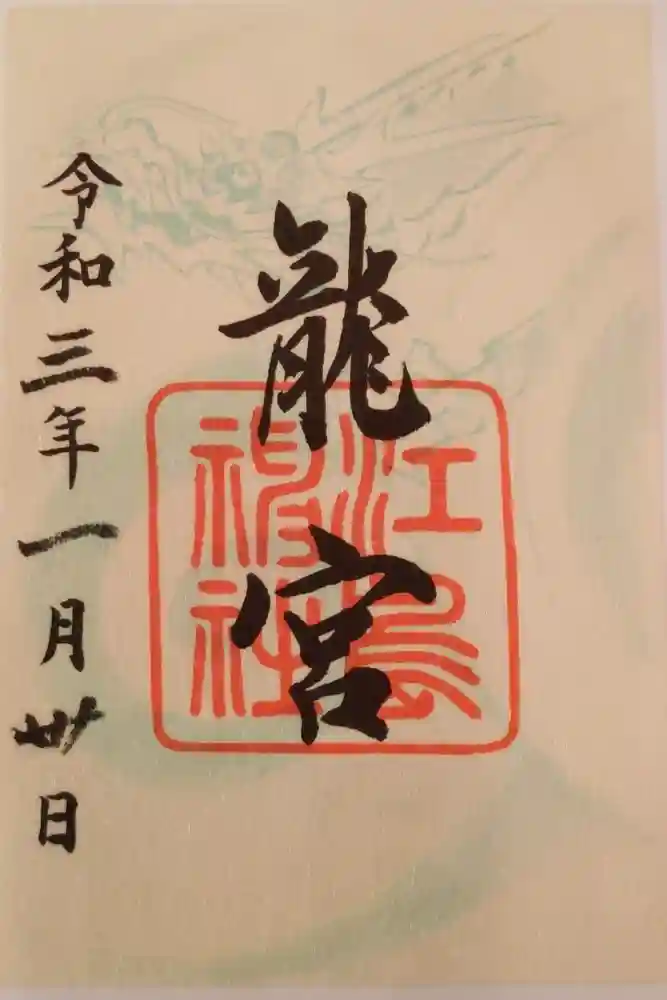 龍宮
江島神社
令和三年一月卅日